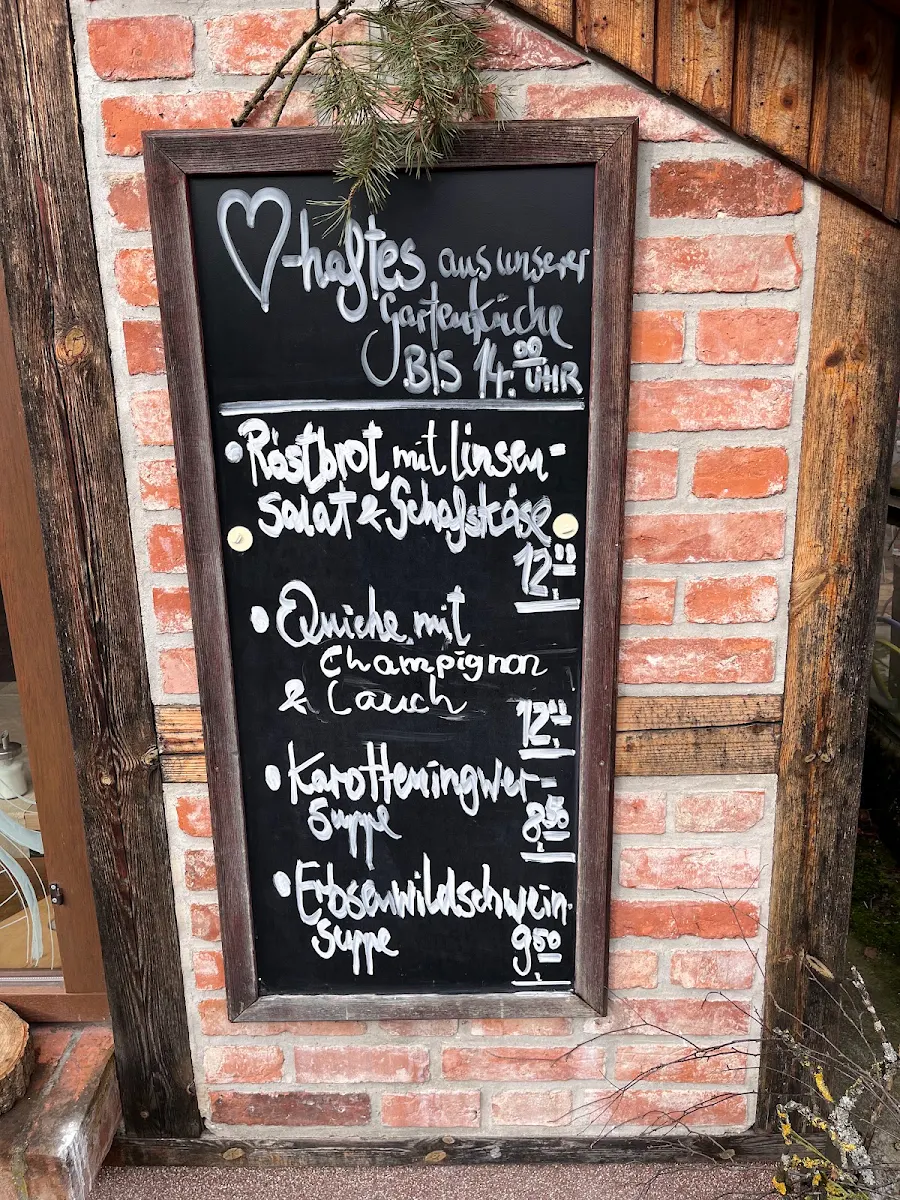 ♡-haftes aus unserer
Gartenküche
BIS 14.00 UHR
• Röstbrot mit Linsen-
Salat & Schafskäse
12.00
• Quiche mit
Champignon
& Lauch
12.00
• Karotteningwer-
Suppe 8.50
• Erbsenwildschwein-
Suppe 9.50